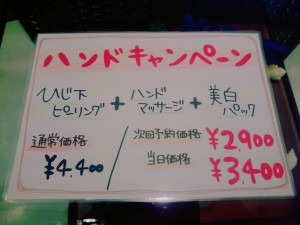 ハンドキャンペーン
ひじ下 ピーリング + ハンド マッサージ + 美白 パック
通常価格 ¥4,400
次回予約価格 ¥2,900
当日価格 ¥3,400